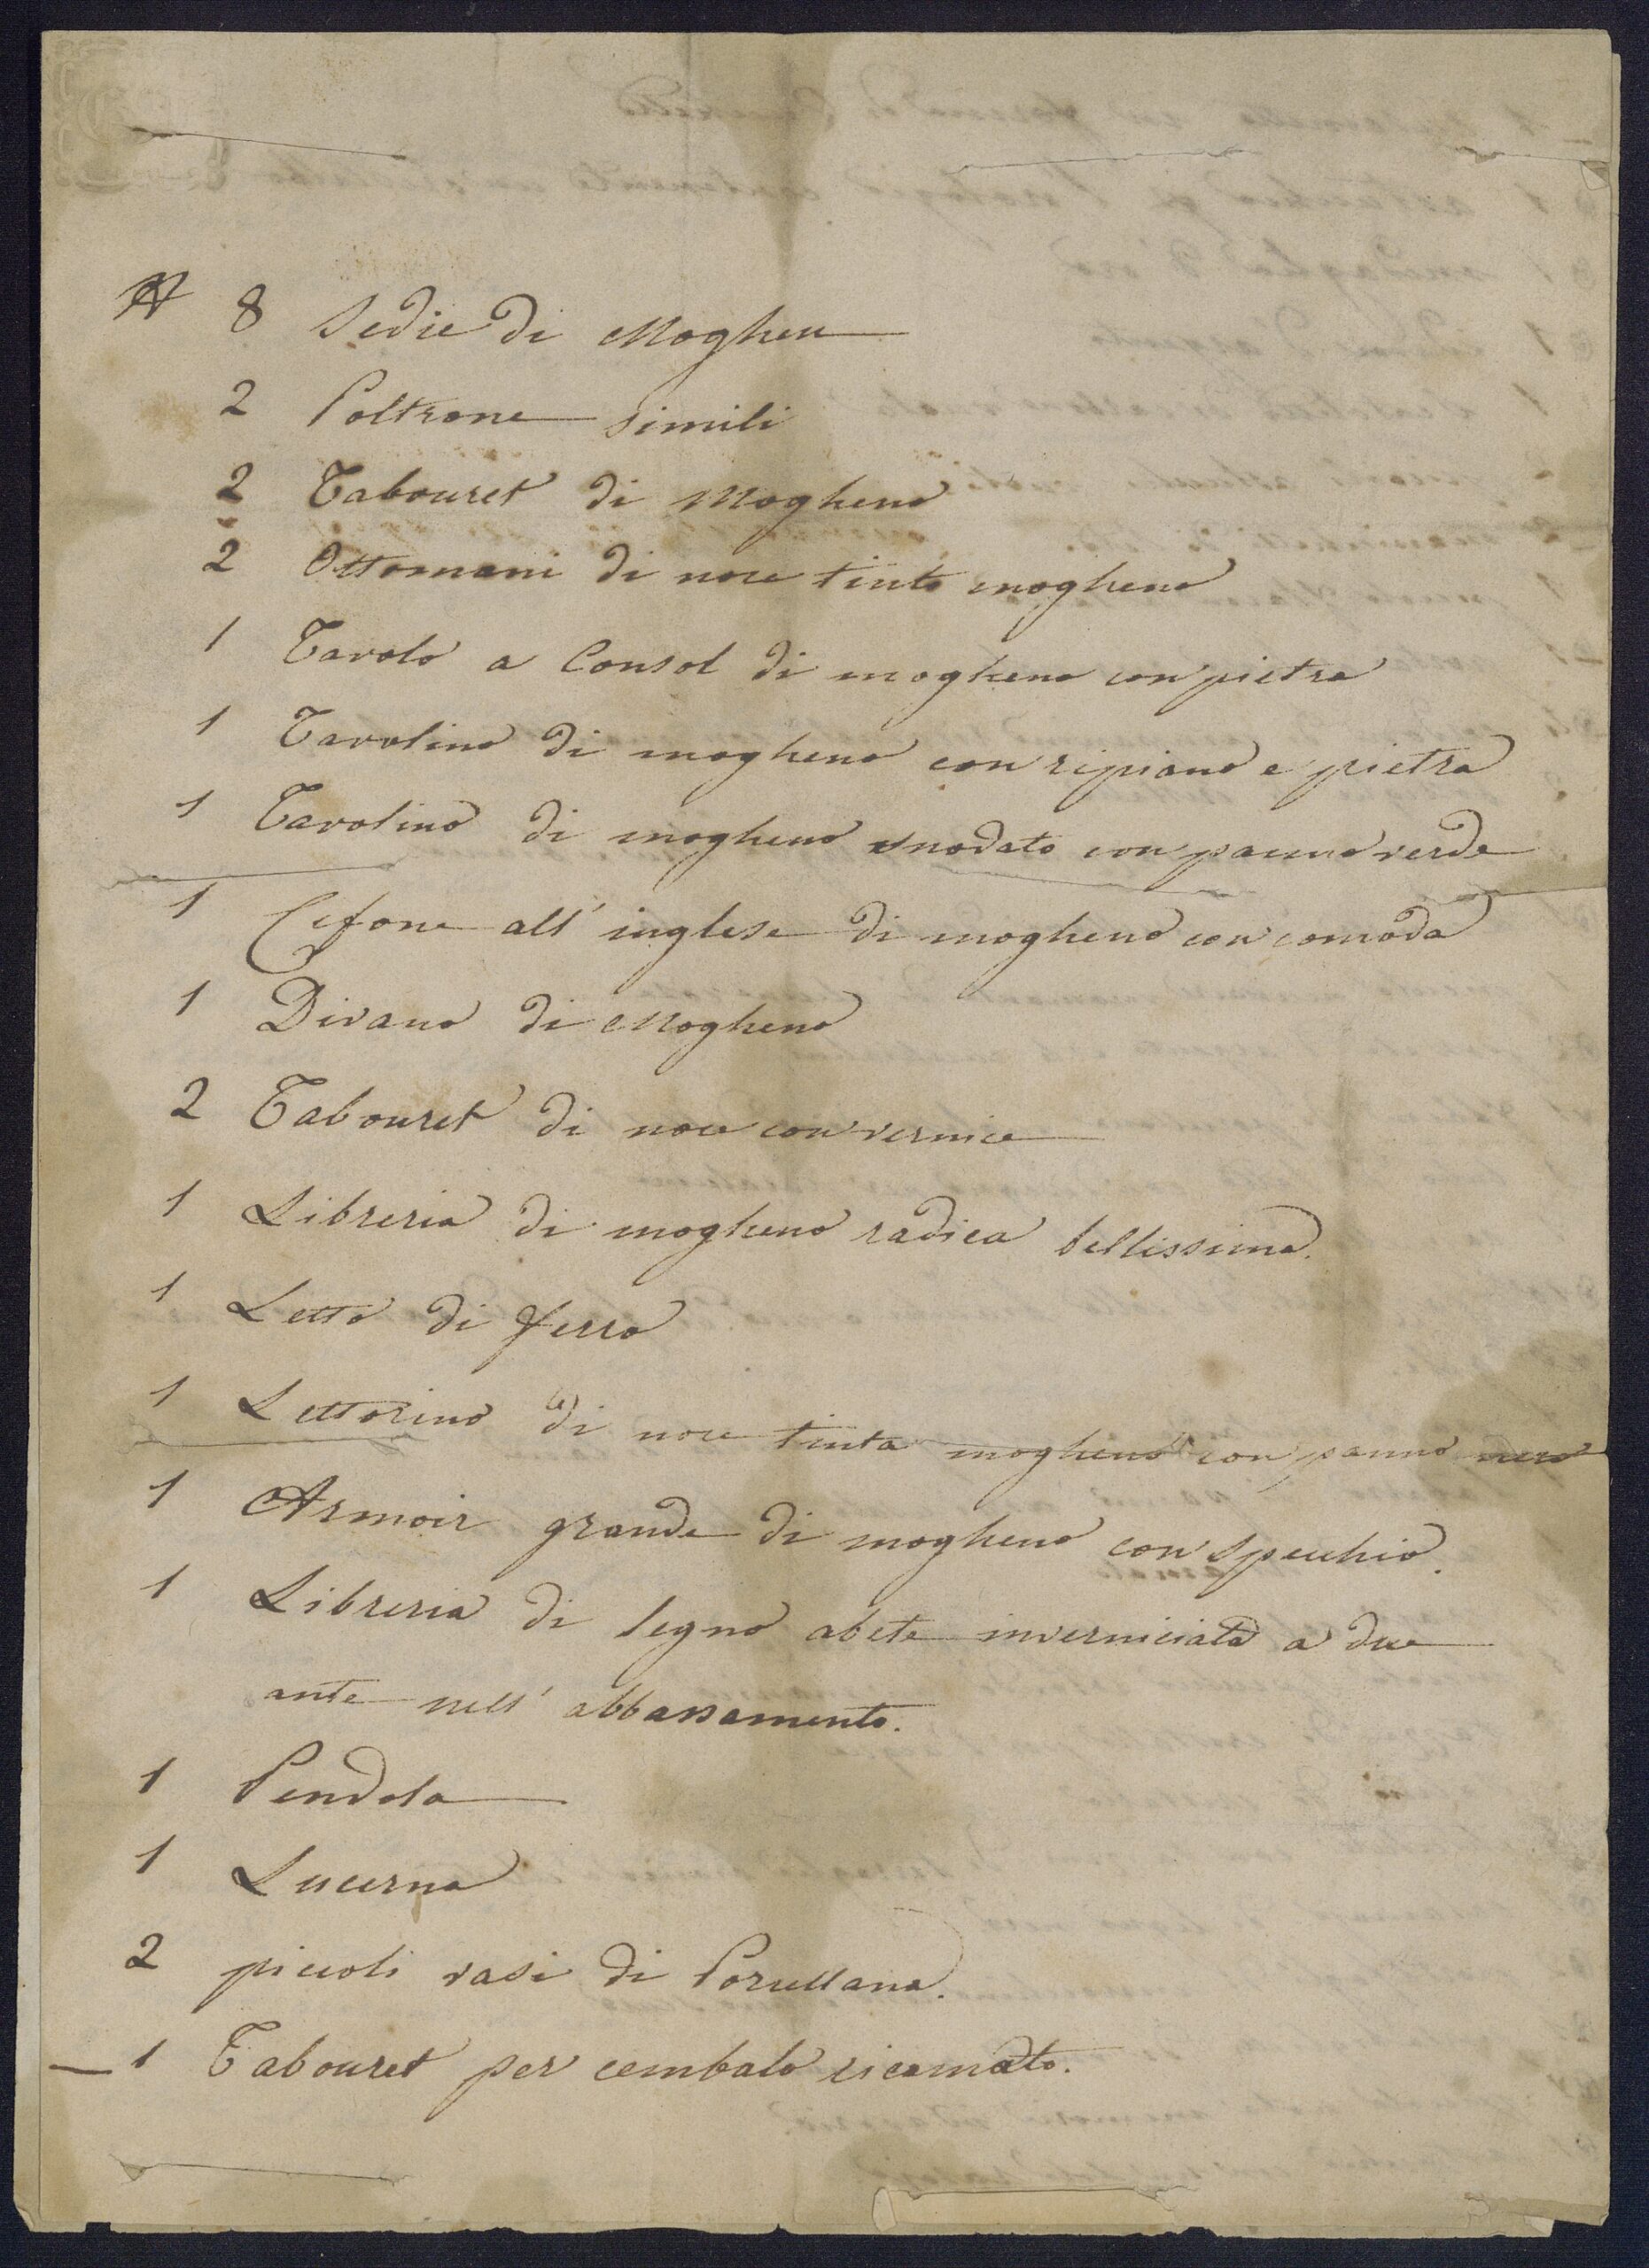 N 8 Sedie di Moghen
2 Poltrone simili
2 Tabouret di Mogheno
2 Ottomani di noce tinto mogheno
1 Tavolo a Consol di mogheno con pietra
1 Tavolino di mogheno con ripiano e pietra
1 Tavolino di mogheno snodato con panno verde
1 Cifone all'inglese di mogheno con comoda
1 Divano di Mogheno
2 Tabouret di noce con vernice
1 Libreria di mogheno radica bellissima.
1 Letto di ferro
1 Lettorino di noce tinta mogheno con panno nero
1 Armoir grande di mogheno con specchio.
1 Libreria di legno abete inverniciata a due
ante nell' abbassamento.
1 Pendola
1 Lucerna
2 piccoli vasi di Porcellana.
— 1 Tabouret per cembalo ricamato.